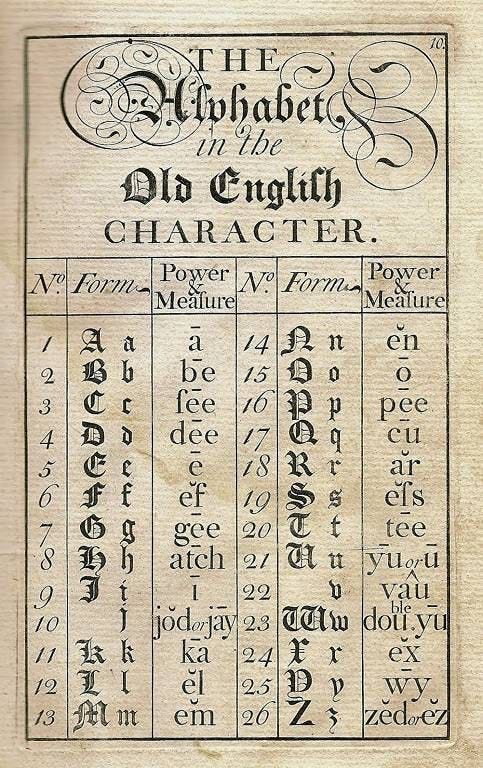 10.
THE
Alphabet
in the
Old Engliſh
CHARACTER.
No. Form Power & Meaſure No. Form Power & Meaſure
1 A a ā 14 N n ĕn
2 B b bē 15 O o ō
3 C c ſēe 16 P p pēe
4 D d dēe 17 Q q cū
5 E e ē 18 R r ăr
6 F f ĕf 19 S s ĕſs
7 G g gēe 20 T t tēe
8 H h ātch 21 U u yūorū
9 I i ī 22 v vâu
10 j jŏdorjāy 23 W w double.yū
11 K k kā 24 X x ĕx
12 L l ĕl 25 Y y wȳ
13 M m ĕm 26 Z z zĕdorĕz